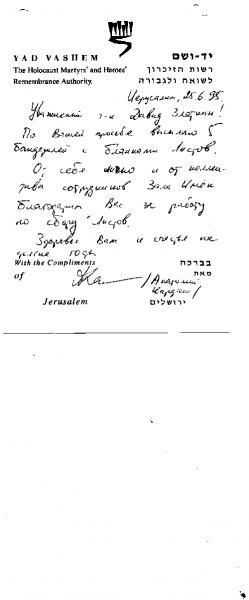 YAD VASHEM
The Holocaust Martyrs' and Heroes'
Remembrance Authority.
יד-ושם
רשות הזיכרון
לשואה ולגבורה
Иерусалим, 25.6.95.
Уважаемый г-н Давид Златкин!
По Вашей просьбе высылаю 5
бандеролей с бланками Листов.
От себя лично и от коллек-
тива сотрудников Зала Имён
благодарим Вас за работу
по сбору Листов.
Здоровья Вам и счастья на
долгие годы
With the Compliments
בברכה
of
מאת
/Анатолий
Кардаш/
Jerusalem
ירושלים